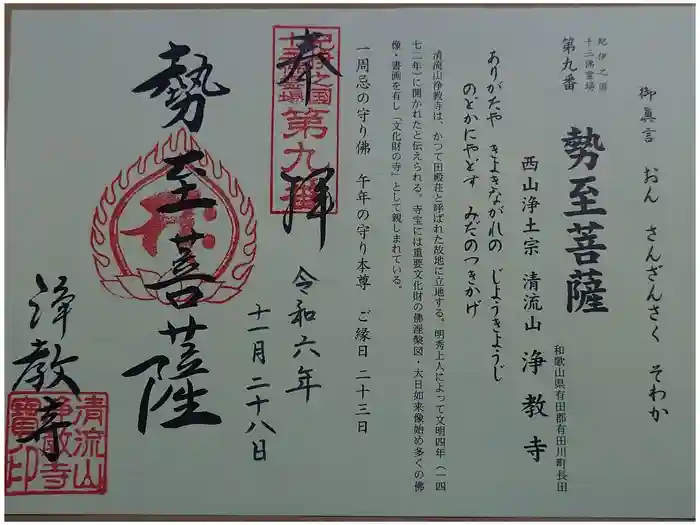 御真言 おん さんざんさく そわか
紀伊之国
十三佛霊場
第九番
勢至菩薩
和歌山県有田郡有田川町長田
西山浄土宗 清流山 浄教寺
ありがたや きよきながれの じようきようじ
のどかにやどす みだのつきかげ
清流山浄教寺は、かつて田殿荘と呼ばれた故地に立地する。明秀上人によって文明四年(一四
七二年)に開かれたと伝えられる。寺宝には重要文化財の佛涅槃図・大日如来像始め多くの佛
像・書画を有し「文化財の寺」として親しまれている。
一周忌の守り佛 午年の守り本尊 ご縁日 二十三日
奉拝
紀伊之国
十三佛霊場
第九番
令和六年
十一月二十八日
勢至菩薩
浄教寺
清流山
浄教寺
寶印